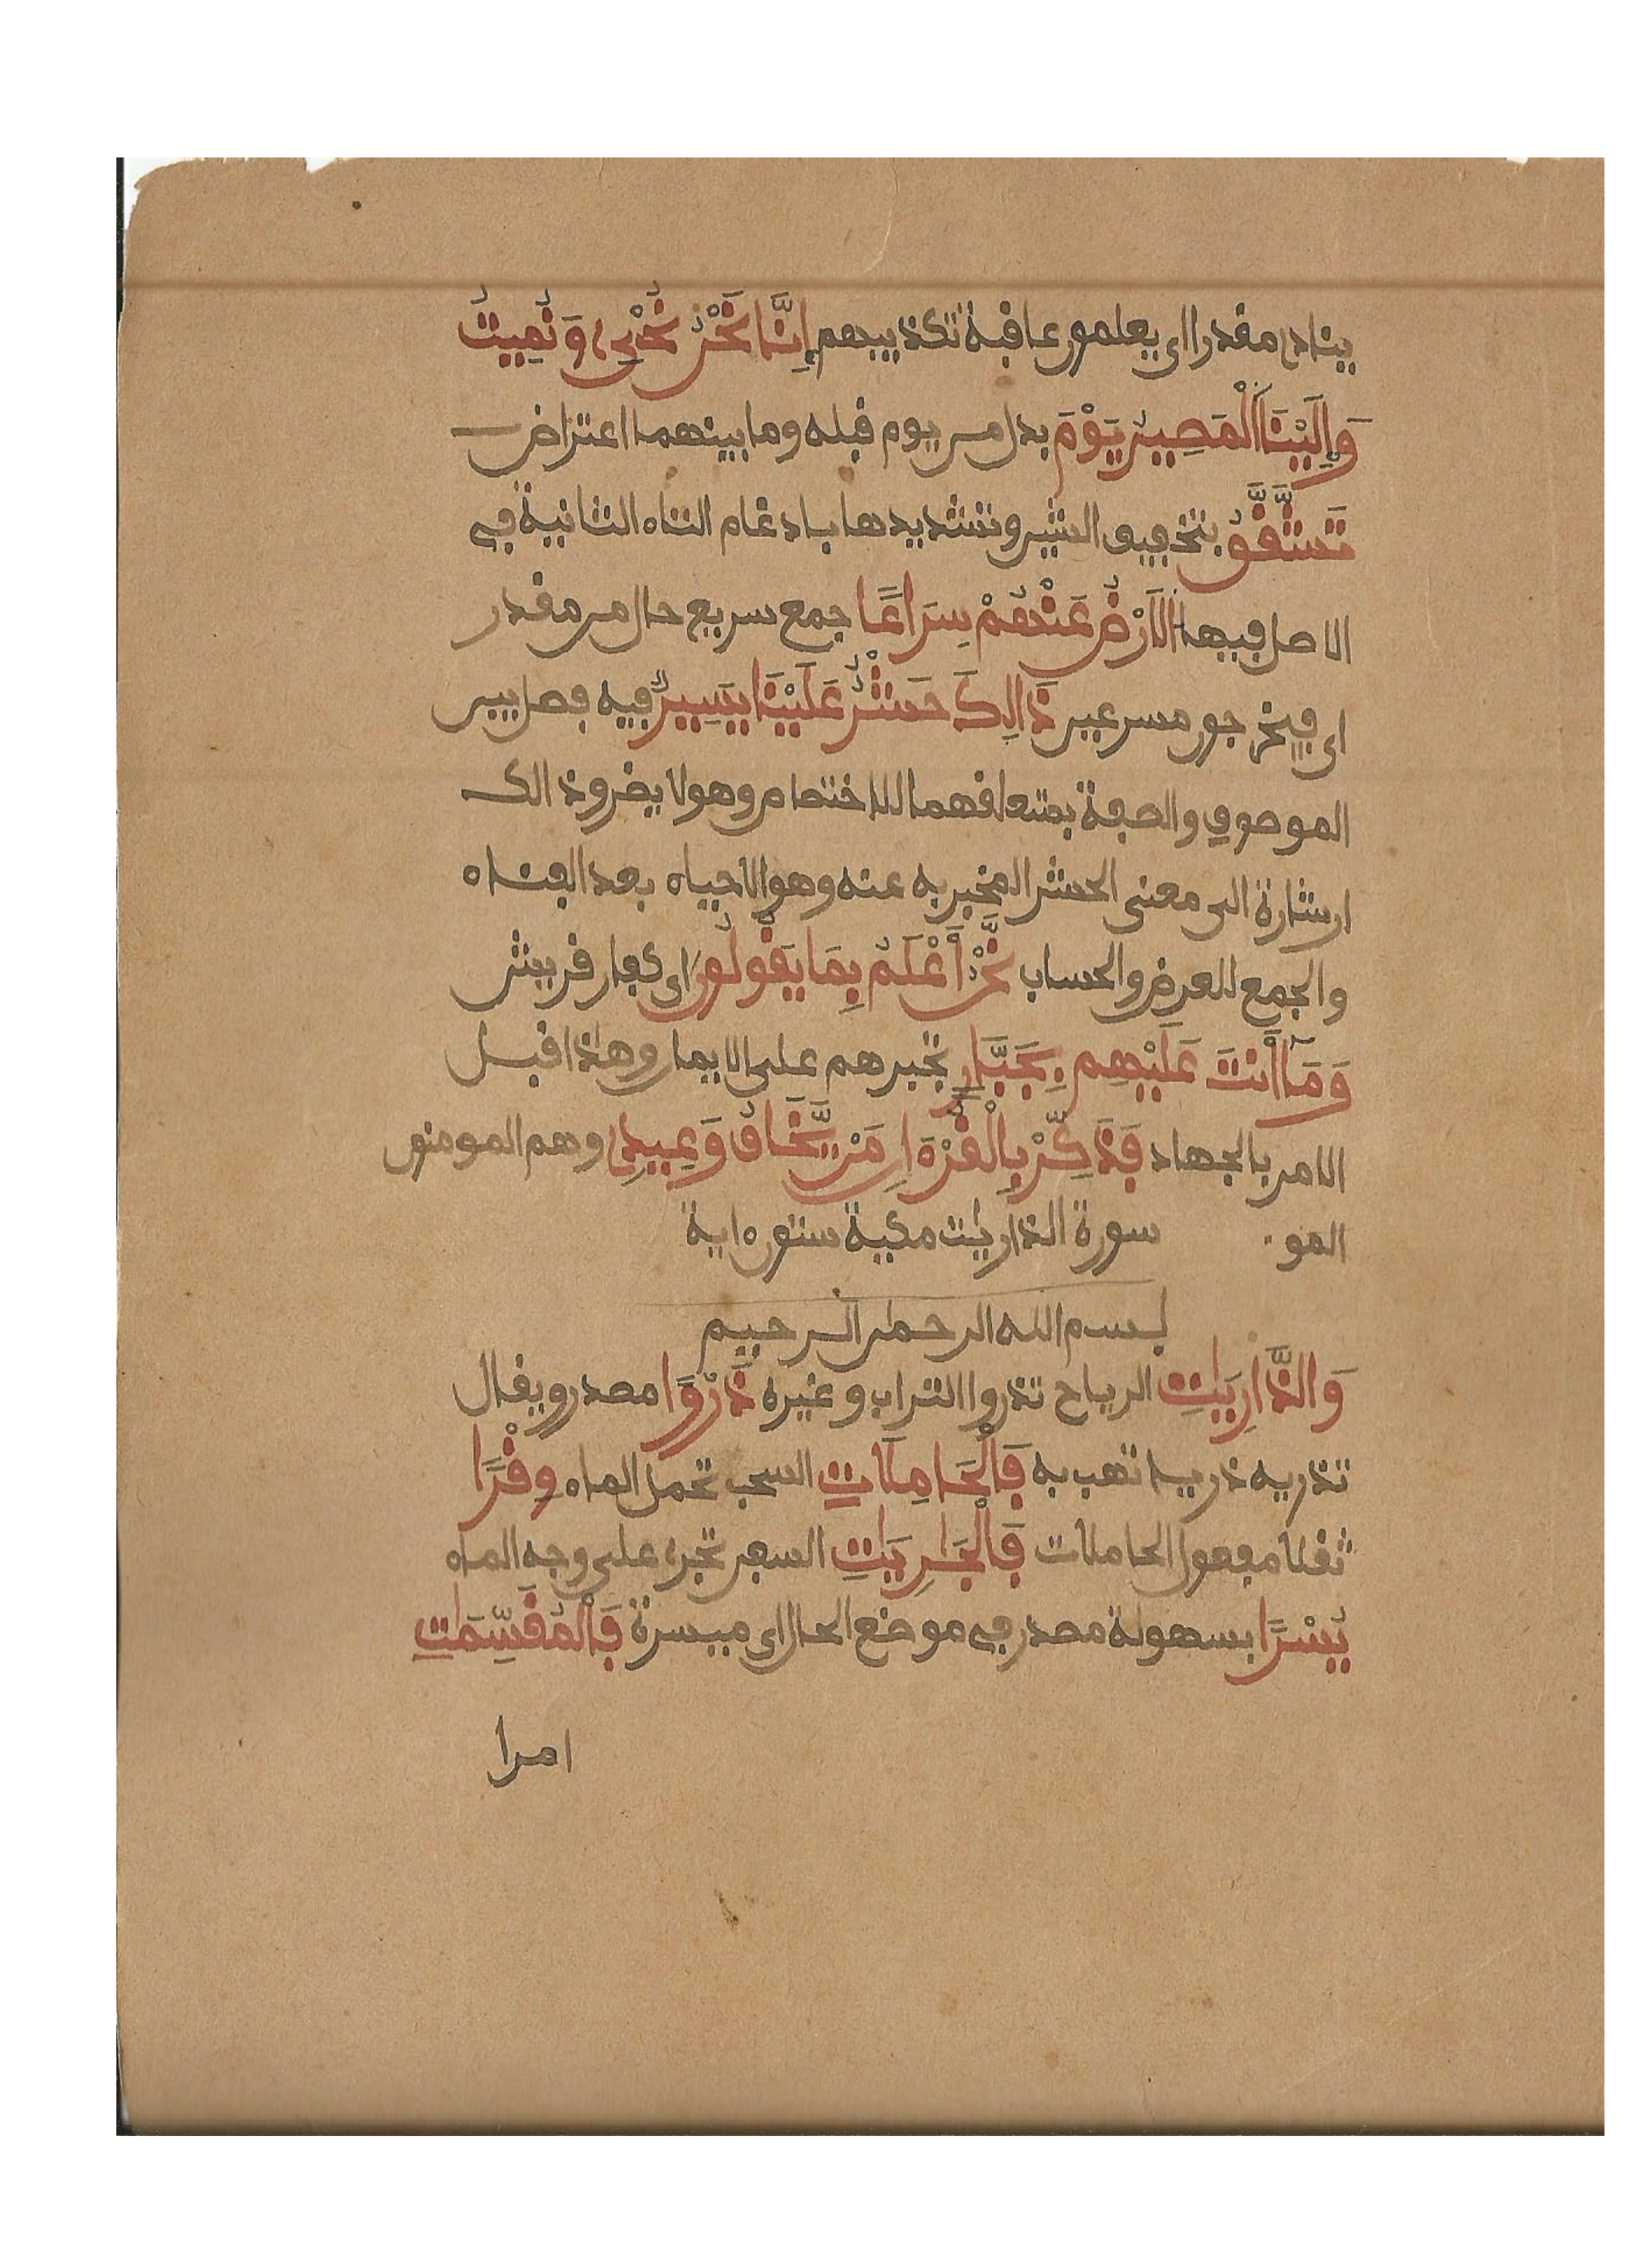 يناد مقدرا اى يعلمون عاقبة تكذيبهم إِنَّا نَحْنُ نُحْيِ وَنُمِيتُ
وَإِلَيْنَا اَلْمَصِيرُ يَوْمَ بدل من يوم قبله وما بينهما اعتراض
تَشَّقَّقُ بتخفيف الشين وتشديدها بادغام التاء الثانية في
الاصل فيها اَلَارْضُ عَنْهُمْ سِرَاعًا جمع سريع حال من مقدر
اى فيخرجون مسرعين ذَالِكَ حَشْرٌ عَلَيْنَا يَسِيرٌ فيه فصل بين
الموصوف والصفة بمتعلقهما للاختصاص وهو لا يضر وذالك
اشارة الى معنى الحشر المخبر به عنه وهو الاحياء بعد الفناء
والجمع للعرض والحساب نَّحْنُ أَعْلَمُ بِمَا يَقُولُونَ اى كفار قريش
وَمَا أَنتَ عَلَيْهِم بِجَبَّارٍ تجبرهم على الايمان وهذا قبل
الامر بالجهاد فَذَكِّرْ بِالْقُرْءَانِ مَنْ يَّخَافُ وَعِيدِ وهم المومنون
المو. سورة الذاريات مكية ستون ءاية
بسم الله الرحمان الرحيم
وَالذَّارِيَاتِ الرياح تذروا التراب وغيره ذَرْوًا مصدر ويقال
تذريه ذريا تهب به فَالْحَامِلَاتِ السحب تحمل الماء وِقْرًا
ثقلا مفعول الحاملات فَالْجَارِيَاتِ السفن تجرى على وجه الماء
يُسْرًا بسهولة مصدر في موضع الحال اى ميسرة فَالْمُقَسِّمَاتِ
امرا